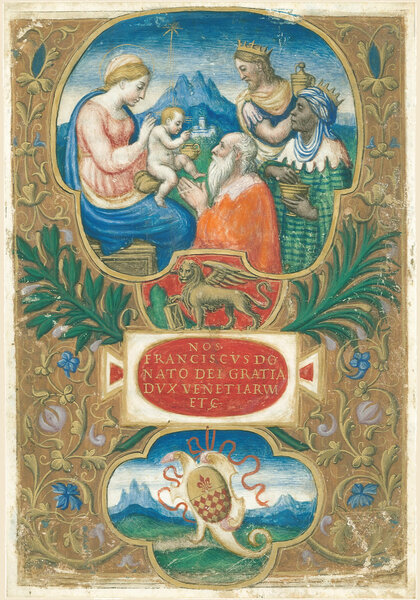 NOS
FRANCISCVS DO
NATO DEI GRATIA
DVX VENETIARVM
ETC